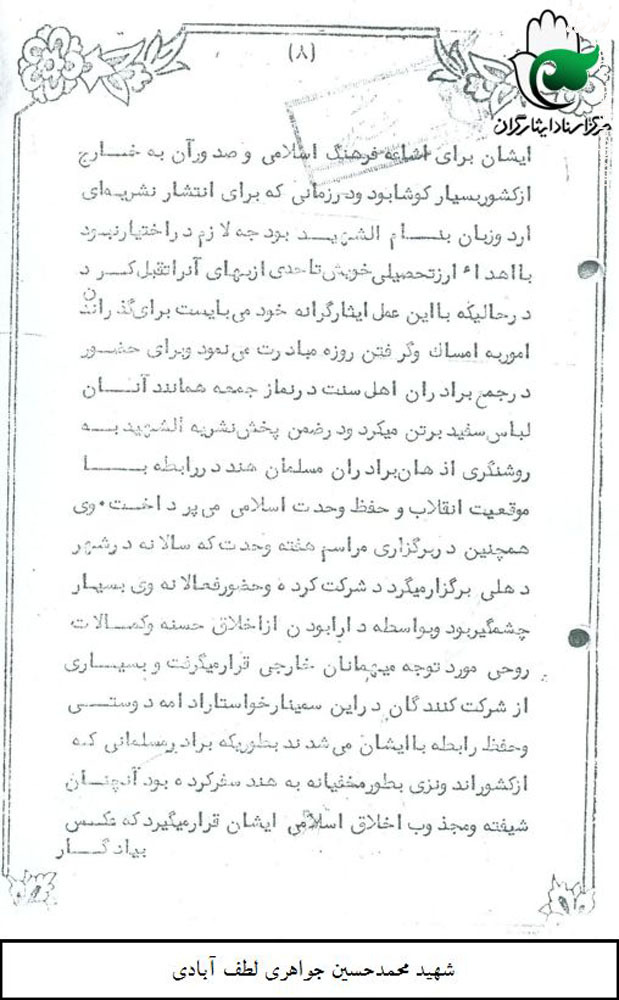 (۸)
مرکز اسناد ایثارگران
ایشان برای اشاعه فرهنگ اسلامی و صدورآن به خارج
ازکشوربسیار کوشابود ودرزمانی که برای انتشار نشریه‌ای
اردوزبان بنام الشهید بودجه لازم دراختیارنبود
بااهداء ارزتحصیلی خویش تاحدی ازبهای آنراتقبل کرد
درحالیکه بااین عمل ایثارگرانه خود می‌بایست برای گذراندن
اموربه امساك وگرفتن روزه مبادرت می‌نمود وبرای حضور
درجمع برادران اهل سنت درنماز جمعه همانند آنان
لباس سفید برتن میکرد ودرضمن پخش نشریه الشهید به
روشنگری اذهان برادران مسلمان هند دررابطه با
موقعیت انقلاب و حفظ وحدت اسلامی می‌پرداخت۰وی
همچنین دربرگزاری مراسم هفته وحدت که سالانه درشهر
دهلی برگزارمیگردد شرکت کرده وحضورفعالانه وی بسیار
چشمگیربود وبواسطه دارابودن ازاخلاق حسنه وکمالات
روحی مورد توجه میهمانان خارجی قرارمیگرفت و بسیاری
از شرکت کنندگان دراین سمینارخواستارادامه دوستی
وحفظ رابطه باایشان می‌شدند بطوریکه برادرمسلمانی که
ازکشوراندونزی بطورمخفیانه به هند سفرکرده بود آنچنان
شیفته ومجذوب اخلاق اسلامی ایشان قرارمیگیرد که عکس
بیادگار
شهید محمدحسین جواهری لطف آبادی